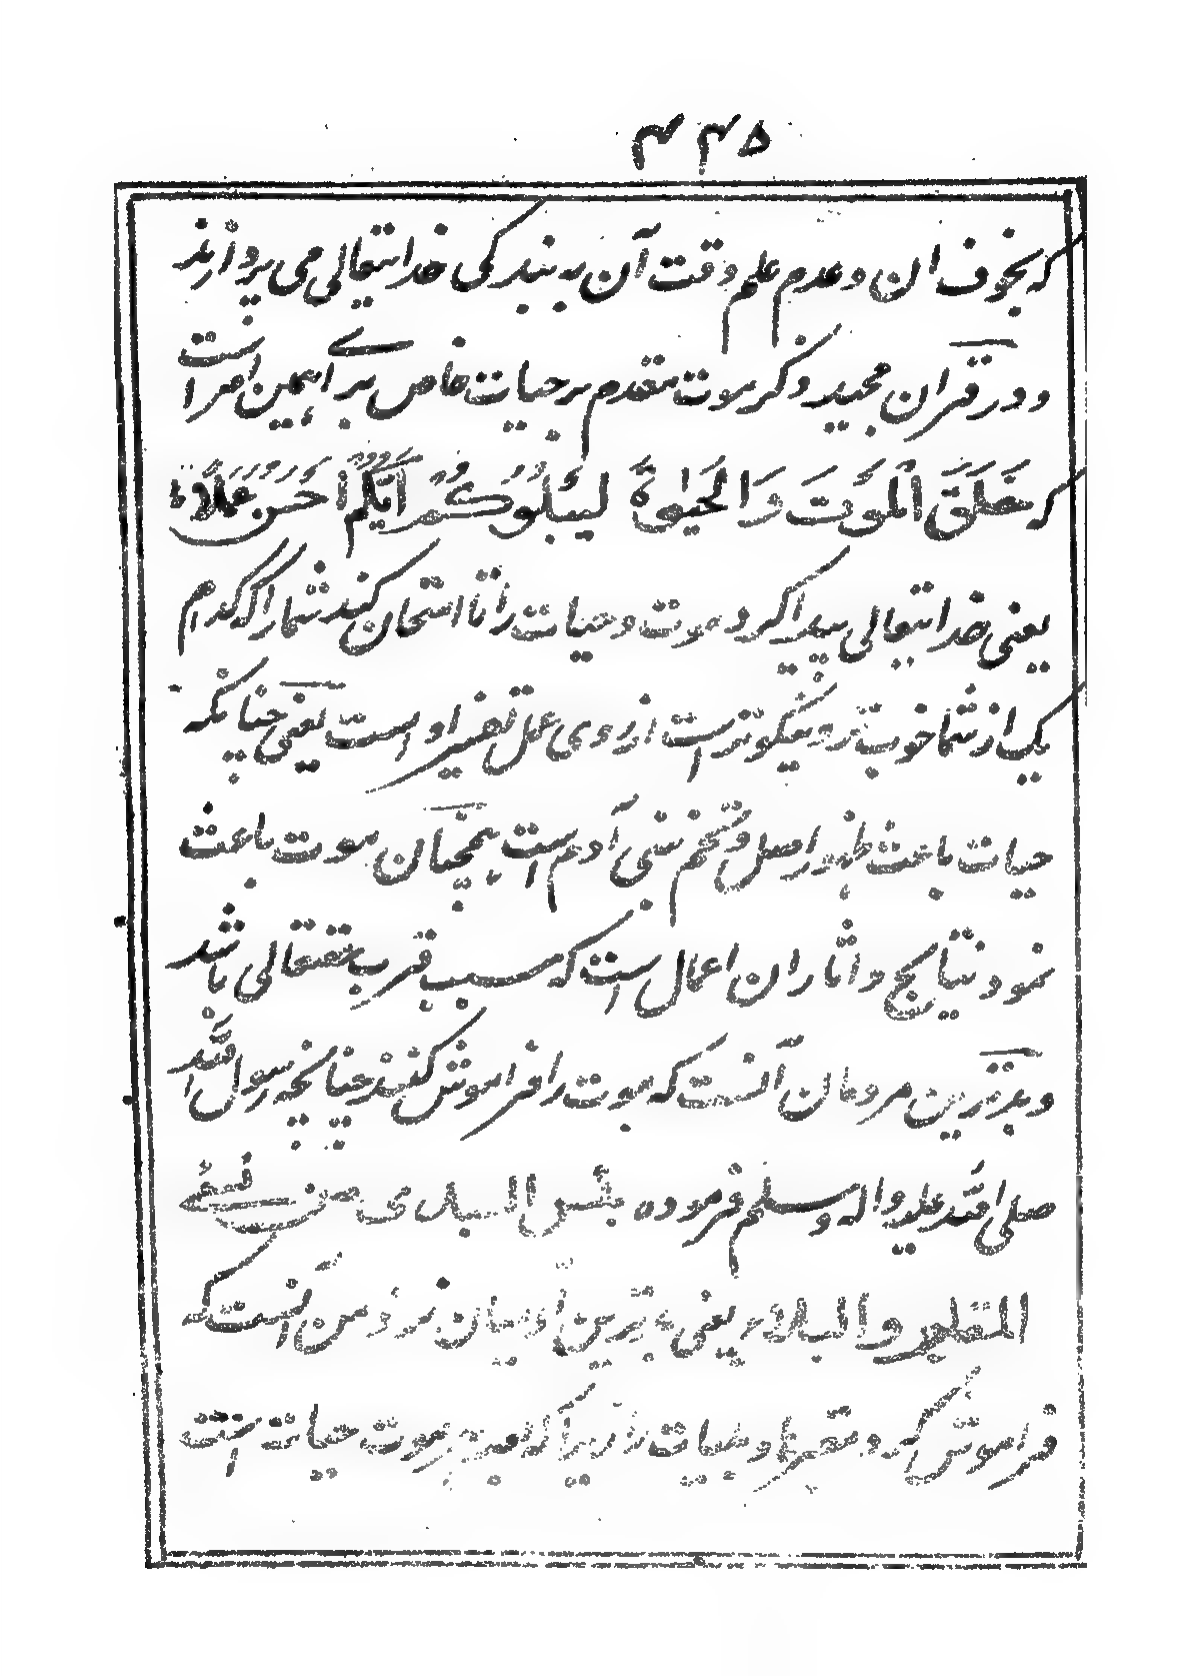 ۴۴۵
که بخوف ان و عدم علم وقت آن به بندگی خدا تعالی می پردازند
و در قران مجید ذکر موت مقدم بر حیات خاص برای همین امر است
که خَلَقَ الْمَوْتَ وَالْحَیٰوةَ لِیَبْلُوَكُمْ اَیُّكُمْ اَحْسَنُ عَمَلًا
یعنی خدا تعالی پیدا کرد موت و حیات را تا امتحان کند شما را که کدام
یک از شما خوب تر و نیکوتر است از روی عمل تفسیر او است یعنی چنانکه
حیات باعث ظهور اصل و تخم بنی آدم است همچنان موت باعث
نمود نتایج و اثار ان اعمال است که سبب قرب حقتعالی باشد
و بدترین مردمان آنست که موت را فراموش کنند چنانچه رسول الله
صلی الله علیه و اله وسلم فرموده بئس العبد من نسی
المقابر والبلاء یعنی بدترین آدمیان نزد من آنست که
فراموش کرد مقبرها و را زیرا که بعد موت حیات است